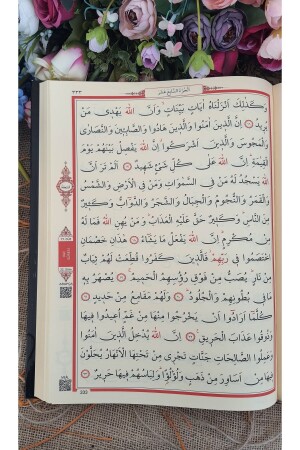 ٣٣٣ اَلْجُزْءُ السَّابِعَ عَشَرَ
وَكَذٰلِكَ اَنْزَلْنَاهُ اٰيَاتٍ بَيِّنَاتٍ وَاَنَّ اللّٰهَ يَهْدٖى مَنْ
يُرٖيدُ ۝ اِنَّ الَّذٖينَ اٰمَنُوا وَالَّذٖينَ هَادُوا وَالصَّابِـٖٔينَ وَالنَّصَارٰى
وَالْمَجُوسَ وَالَّذٖينَ اَشْرَكُوا اِنَّ اللّٰهَ يَفْصِلُ بَيْنَهُمْ يَوْمَ
الْقِيٰمَةِ اِنَّ اللّٰهَ عَلٰى كُلِّ شَىْءٍ شَهٖيدٌ ۝ اَلَمْ تَرَ اَنَّ
اللّٰهَ يَسْجُدُ لَهُ مَنْ فِى السَّمٰوَاتِ وَمَنْ فِى الْاَرْضِ وَالشَّمْسُ
وَالْقَمَرُ وَالنُّجُومُ وَالْجِبَالُ وَالشَّجَرُ وَالدَّوَابُّ وَكَثٖيرٌ
مِنَ النَّاسِ وَكَثٖيرٌ حَقَّ عَلَيْهِ الْعَذَابُ وَمَنْ يُهِنِ اللّٰهُ فَمَا لَهُ
مِنْ مُكْرِمٍ اِنَّ اللّٰهَ يَفْعَلُ مَا يَشَاءُ ۝ هٰذَانِ خَصْمَانِ
اخْتَصَمُوا فٖى رَبِّهِمْ فَالَّذٖينَ كَفَرُوا قُطِّعَتْ لَهُمْ ثِيَابٌ
مِنْ نَارٍ يُصَبُّ مِنْ فَوْقِ رُؤُسِهِمُ الْحَمٖيمُ ۝ يُصْهَرُ بِهٖ
مَا فٖى بُطُونِهِمْ وَالْجُلُودُ ۝ وَلَهُمْ مَقَامِعُ مِنْ حَدٖيدٍ ۝
كُلَّمَا اَرَادُوا اَنْ يَخْرُجُوا مِنْهَا مِنْ غَمٍّ اُعٖيدُوا فٖيهَا
وَذُوقُوا عَذَابَ الْحَرٖيقِ ۝ اِنَّ اللّٰهَ يُدْخِلُ الَّذٖينَ اٰمَنُوا
وَعَمِلُوا الصَّالِحَاتِ جَنَّاتٍ تَجْرٖى مِنْ تَحْتِهَا الْاَنْهَارُ يُحَلَّوْنَ
فٖيهَا مِنْ اَسَاوِرَ مِنْ ذَهَبٍ وَلُؤْلُؤًا وَلِبَاسُهُمْ فٖيهَا حَرٖيرٌ ۝
333